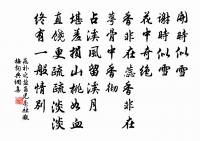 開時似雪
謝時似雪
花中奇絕
香非在蕊香非在
萼骨中香徹
占溪風留溪月
堪羞損山桃如血
直饒更疏疏淡淡
終有一般情別